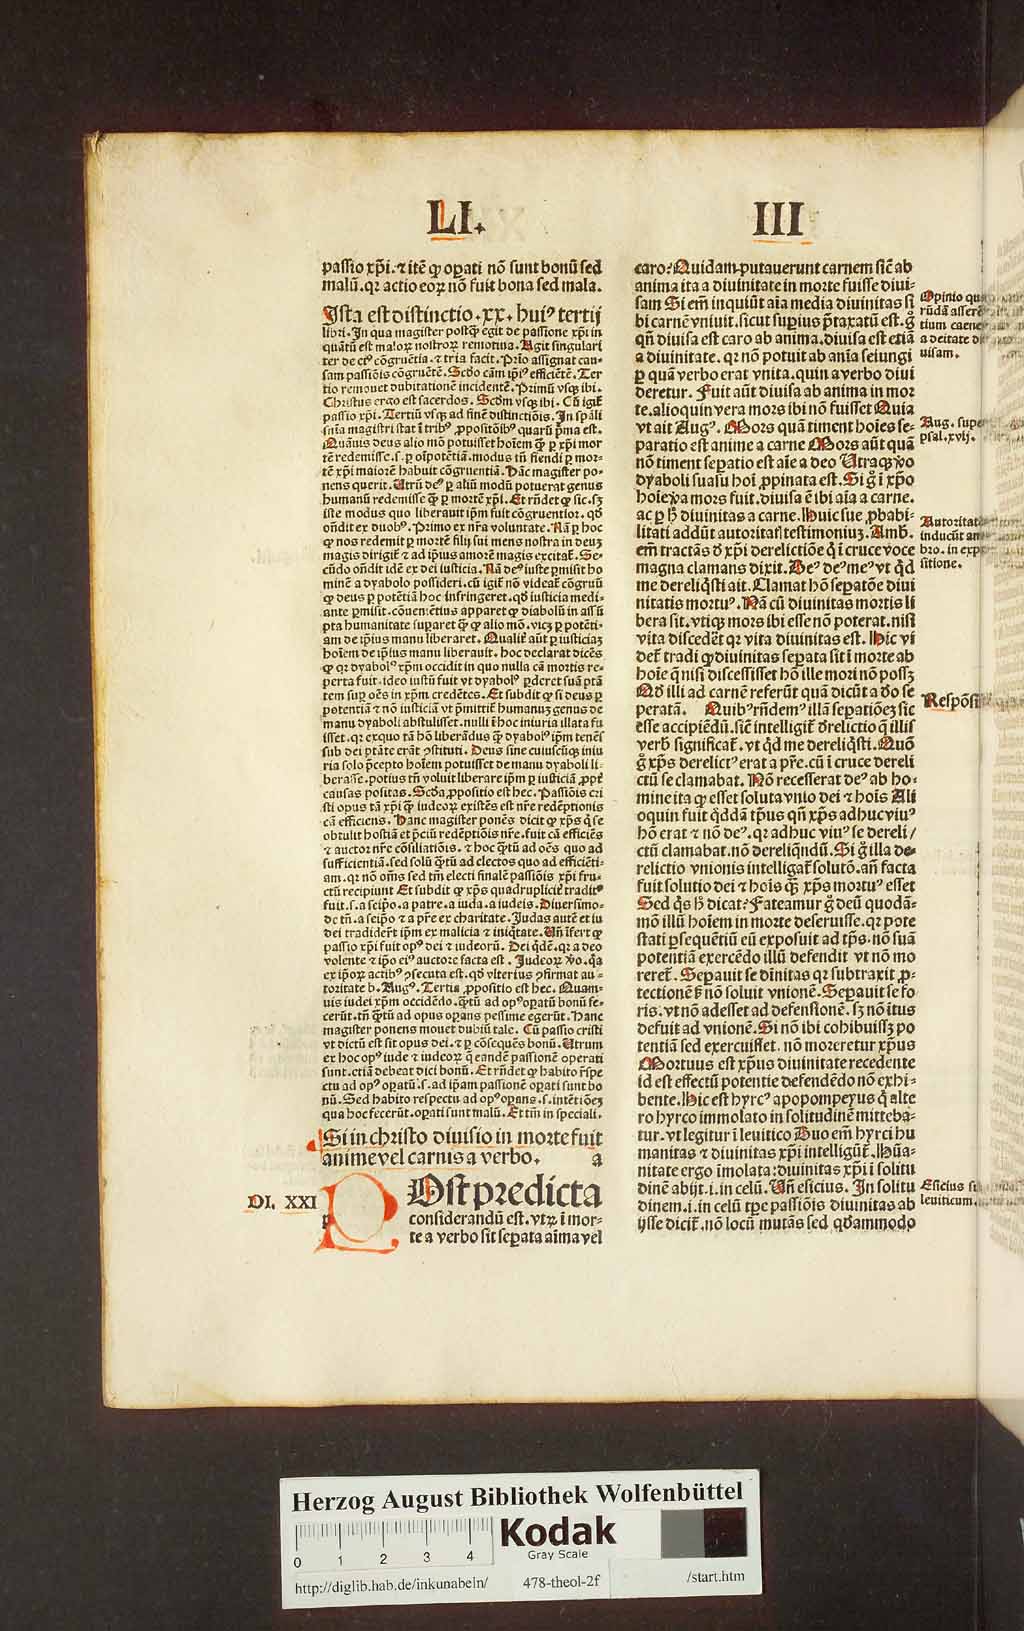 LI.
III
passio xp̄i. ⁊ itē ꝙ oꝑati nō sunt bonū sed
malū. qꝛ actio eoꝝ nō fuit bona sed mala.
Ista est distinctio .xx. huiꝰ tertij
libri. In qua magister postꝙ̄ egit de passione xp̄i in
quātū est maloꝝ nostroꝝ remotiua. Agit singulari
ter de eiꝰ cōgruētia. ⁊ tria facit. Prīo assignat cau-
sam passiōis cōgruētē. Scd̄o cām ip̄iꝰ efficiētē. Ter
tio remouet dubitationē incidentē. Primū vsqꝫ ibi.
Christus ergo est sacerdos. Scd̄m vsqꝫ ibi. Cū igit̄
passio xp̄i. Tertiū vsqꝫ ad finē distinctiōis. In sp̄āli
snīa magistri stat ī tribꝰ ꝓpositōibꝰ quarū p̄ma est.
Quāuis deus alio mō potuisset hoīem ꝙ̄ ꝑ xp̄i mor
tē redemisse. s. ꝑ oīpotētiā. modus tn̄ fiendi ꝑ mor-
tē xp̄i maiorē habuit cōgruentiā. Hāc magister po-
nens querit. Utrū deꝰ ꝑ aliū modū potuerat genus
humanū redemisse ꝙ̄ ꝑ mortē xp̄i. Et rn̄det ꝙ sic. sꝫ
iste modus quo liberauit ip̄m fuit cōgruentior. qd̄
on̄dit ex duobꝰ. Primo ex nr̄a voluntate. Nā ꝑ hoc
ꝙ nos redemit ꝑ mortē filij sui mens nostra in deuꝫ
magis dirigit̄ ⁊ ad ip̄ius amorē magis excitat̄. Se-
cūdo on̄dit idē ex dei iusticia. Nā deꝰ iuste ꝑmisit ho
minē a dyabolo possideri. cū igit̄ nō videat̄ cōgruū
ꝙ deus ꝑ potētiā hoc infringeret. qd̄ iusticia medi-
ante ꝑmisit. cōueniētius apparet ꝙ diabolū in assū
pta humanitate suꝑaret ꝙ̄ ꝙ alio mō. vicꝫ ꝑ potēti-
am de ip̄ius manu liberaret. Qualit̄ aūt ꝑ iusticiaꝫ
hoīem de ip̄ius manu liberauit. hoc declarat dicēs
ꝙ qꝛ dyabolꝰ xp̄m occidit in quo nulla cā mortis re-
perta fuit. ideo iustū fuit vt dyabolꝰ ꝑderet suā ptā
tem suꝑ oēs in xp̄m credētes. Et subdit ꝙ si deus ꝑ
potentiā ⁊ nō iusticiā vt p̄mittit̄ humanuꝫ genus de
manu dyaboli abstulisset. nulli ī hoc iniuria illata fu
isset. qꝛ exquo tā hō liberādus ꝙ̄ dyabolꝰ ip̄m tenēs
sub dei ptāte erāt ꝯstituti. Deus sine cuiuscūqꝫ iniu
ria solo p̄cepto hoīem potuisset de manu dyaboli li-
berasse. potius tn̄ voluit liberare ip̄m ꝑ iusticiā ꝓpt̄
causas positas. Scd̄a ꝓpositio est hec. Passiōis cri
sti opus tā xp̄i ꝙ̄ iudeoꝝ existēs est nr̄e redēptionis
cā efficiens. Hanc magister ponēs dicit ꝙ xp̄s qͥ se
obtulit hostiā et p̄ciū redēptiōis nr̄e. fuit cā efficiēs
⁊ auctor nr̄e cōsiliatiōis. ⁊ hoc qͣtū ad oēs quo ad
sufficientiā. sed solū qͣtū ad electos quo ad efficiēti-
am. qꝛ nō om̄s sed tm̄ electi finalē passiōis xp̄i fru-
ctū recipiunt Et subdit ꝙ xp̄s quadrupliciē traditꝰ
fuit. s. a seip̄o. a patre. a iuda. a iudeis. Diuersimo-
de tn̄. a seipo ⁊ a pr̄e ex charitate. Judas autē et iu
dei tradider̄t ip̄m ex malicia ⁊ iniqͥtate. Un̄ īfert ꝙ
passio xp̄i fuit opꝰ dei ⁊ iudeorū. Dei qͥdē. qꝛ a deo
volente ⁊ ip̄o eiꝰ auctore facta est. Judeoꝝ v̄o. qͥa
ex ip̄oꝝ actibꝰ ꝯsecuta est. qd̄ vlterius ꝯfirmat au-
toritate b. Augꝰ. Tertia ꝓpositio est hec. Quam-
uis iudei xp̄m occidēdo. qͣtū ad opꝰ oꝑatū bonū fe-
cerūt. tn̄ qͣtū ad opus oꝑans pessime egerūt. Hanc
magister ponens mouet dubiū tale. Cū passio cristi
vt dictū est sit opus dei. ⁊ ꝑ cōseq̄ues bonū. Utrum
ex hoc opꝰ iude ⁊ iudeoꝝ qͥ eandē passionē operati
sunt. etiā debeat dici bonū. Et rn̄det ꝙ habito r̄spe
ctu ad opꝰ oꝑatū .s. ad ip̄am passionē oꝑati sunt bo
nū. Sed habito respectu ad opꝰ oꝑans .s. intētiōeꝫ
qua hoc fecerūt. oꝑati sunt malū. Et tn̄ in speciali.
Si in christo diuisio in morte fuit
anime vel carnis a verbo. a
DI. XXI
p
Ost predicta
considerandū est. vtꝝ ī mor-
te a verbo sit seꝑata aīma vel
caro? Quidam putauerunt carnem sic̄ ab
anima ita a diuinitate in morte fuisse diui-
sam Si em̄ inquiūt aīa media diuinitas si
bi carnē vniuit. sicut suꝑius p̄taxatū est. gͦ
qn̄ diuisa est caro ab anima. diuisa est etiā
a diuinitate. qꝛ nō potuit ab anīa seiungi
ꝑ quā verbo erat vnita. quin a verbo diui
deretur. Fuit aūt diuisa ab anima in mor
te. alioquin vera mors ibi nō fuisset Quia
vt ait Augꝰ. Mors quā timent hoīes se-
paratio est anime a carne Mors aūt quā
nō timent seꝑatio est aīe a deo Utraqꝫ v̄o
dyaboli suasu hoī ꝓpinata est. Si gͦ ī xp̄o
hoīe v̄a mors fuit. diuisa ē ibi aīa a carne.
ac ꝑ h̄ diuinitas a carne. Huic sue ꝓbabi-
litati addūt autoritatꝭ testimoniuꝫ. Amb̄.
em̄ tractās d̄ xp̄i derelictiōe qͥ ī cruce voce
magna clamans dixit. Deꝰ deꝰ meꝰ vt qͥd
me dereliqͥsti ait. Clamat hō seꝑatōe diui
nitatis mortuꝰ. Nā cū diuinitas mortis li
bera sit. vtiqꝫ mors ibi esse nō poterat. nisi
vita discedet̄ qꝛ vita diuinitas est. Hic vi
det̄ tradi ꝙ diuinitas seꝑata sit ī morte ab
hoīe qͥ nisi discessisset hō ille mori nō possꝫ
Qd̄ illi ad carnē referūt quā dicūt a d̄o se
peratā. Quibꝰ rn̄dem̄ꝰ illā seꝑatiōeꝫ sic
esse accipiēdū. sic̄ intelligit̄ d̄relictio qͥ illis
verb̄ significat̄. vt qͥd me dereliqͥsti. Quō
gͦ xp̄s derelictꝰ erat a pr̄e. cū ī cruce dereli
ctū se clamabat. Nō recesserat deꝰ ab ho-
mine ita ꝙ esset soluta vnio dei ⁊ hoīs Ali
oquin fuit qͥddā tp̄us qn̄ xp̄s adhuc viuꝰ
hō erat ⁊ nō deꝰ. qꝛ adhuc viuꝰ se dereli/
ctū clamabat. nō dereliqͥndū. Si gͦ illa de-
relictio vnionis intelligat̄ solutō. an̄ facta
fuit solutio dei ⁊ hoīs qͣꝫ xp̄s mortuꝰ esset
Sed qͥs h̄ dicat? Fateamur gͦ deū quodā-
mō illū hoīem in morte deseruisse. qꝛ pote
stati ꝑsequētiū eū exposuit ad tp̄s. nō suā
potentiā exercēdo illū defendit vt nō mo
reret̄. Seꝑauit se diīnitas qꝛ subtraxit ꝓ-
tectionē sꝫ nō soluit vnionē. Seꝑauit se fo
ris. vt nō adesset ad defensionē. sꝫ nō ītus
defuit ad vnionē. Si nō ibi cohibuissꝫ po
tentiā sed exercuisset. nō moreretur xp̄us
Mortuus est xp̄us diuinitate recedente
id est effectū potentie defendēdo nō exhi-
bente. Hic est hyrcꝰ apopompeyus qͥ alte
ro hyrco immolato in solitudinē mitteba-
tur. vt legitur ī leuitico Duo em̄ hyrci hu
manitas ⁊ diuinitas xp̄i intelligūt̄. Hūa-
nitate ergo īmolata: diuinitas xp̄i ī solitu
dinē abijt. i. in celū. Un̄ esicius. In solitu
dinem. i. in celū tp̄e passiōis diuinitas ab
ijsse dicit̄. nō locū mutās sed qd̄ammodo
Opinio
rūdā asser
tium
a deitate
uisam.
Aug. supe
psal. xvij.
Autoritat
inducūt
bro. in exp
sitione.
Respōsi
Esicius
leuiticum.
Herzog August Bibliothek Wolfenbüttel
0 1 2 3 4
Kodak
Gray Scale
http://diglib.hab.de/inkunabeln/ 478-theol-2f /start.htm